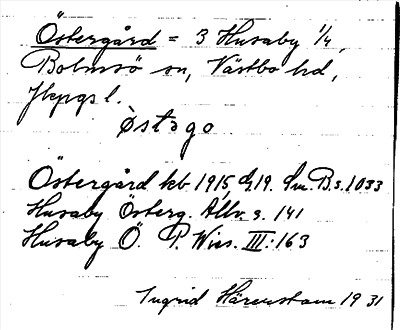 Östergård = 3 Husaby 1/4,
Bolmsö sn, Västbo hd,
Jkpgs l.
Òstago
Östergård kb 1915, G.19. Sm. B. s. 1033
Husaby Österg. Allv. s. 141
Husaby Ö. P. Wies. III: 163
Ingrid Härenstam 1931